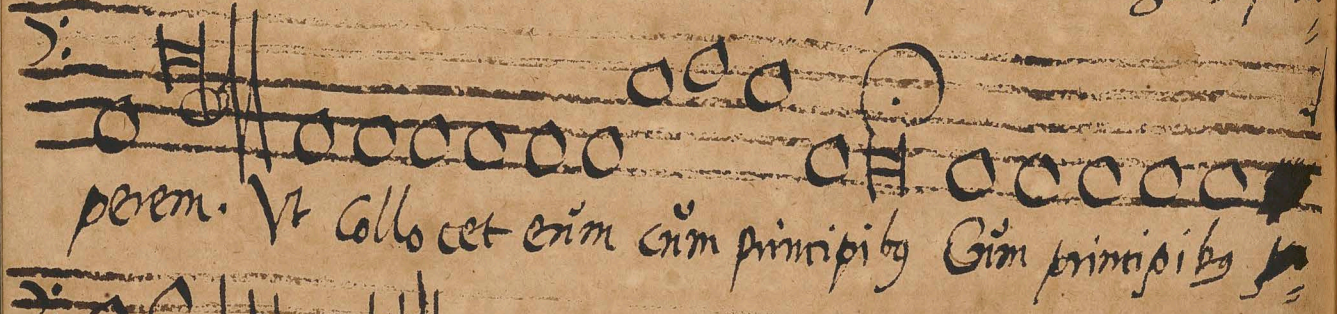 perem. Vt Collocet eum cum principibus Cum principibus